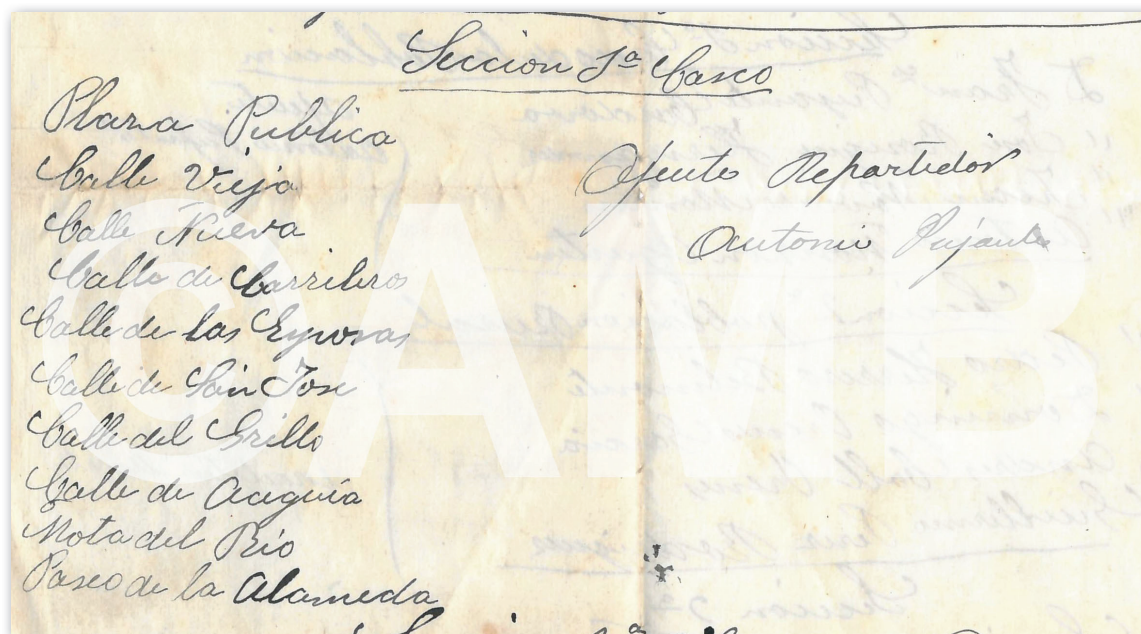 Seccion 1ª Casco
Plaza Publica
Calle Vieja
Calle Nueva
Calle de Carrileros
Calle de las Esposas
Calle de San Jose
Calle del Grillo
Calle de Acequia
Mota del Rio
Paseo de la Alameda
Agente Repartidor
Antonio Pujante
©AMB